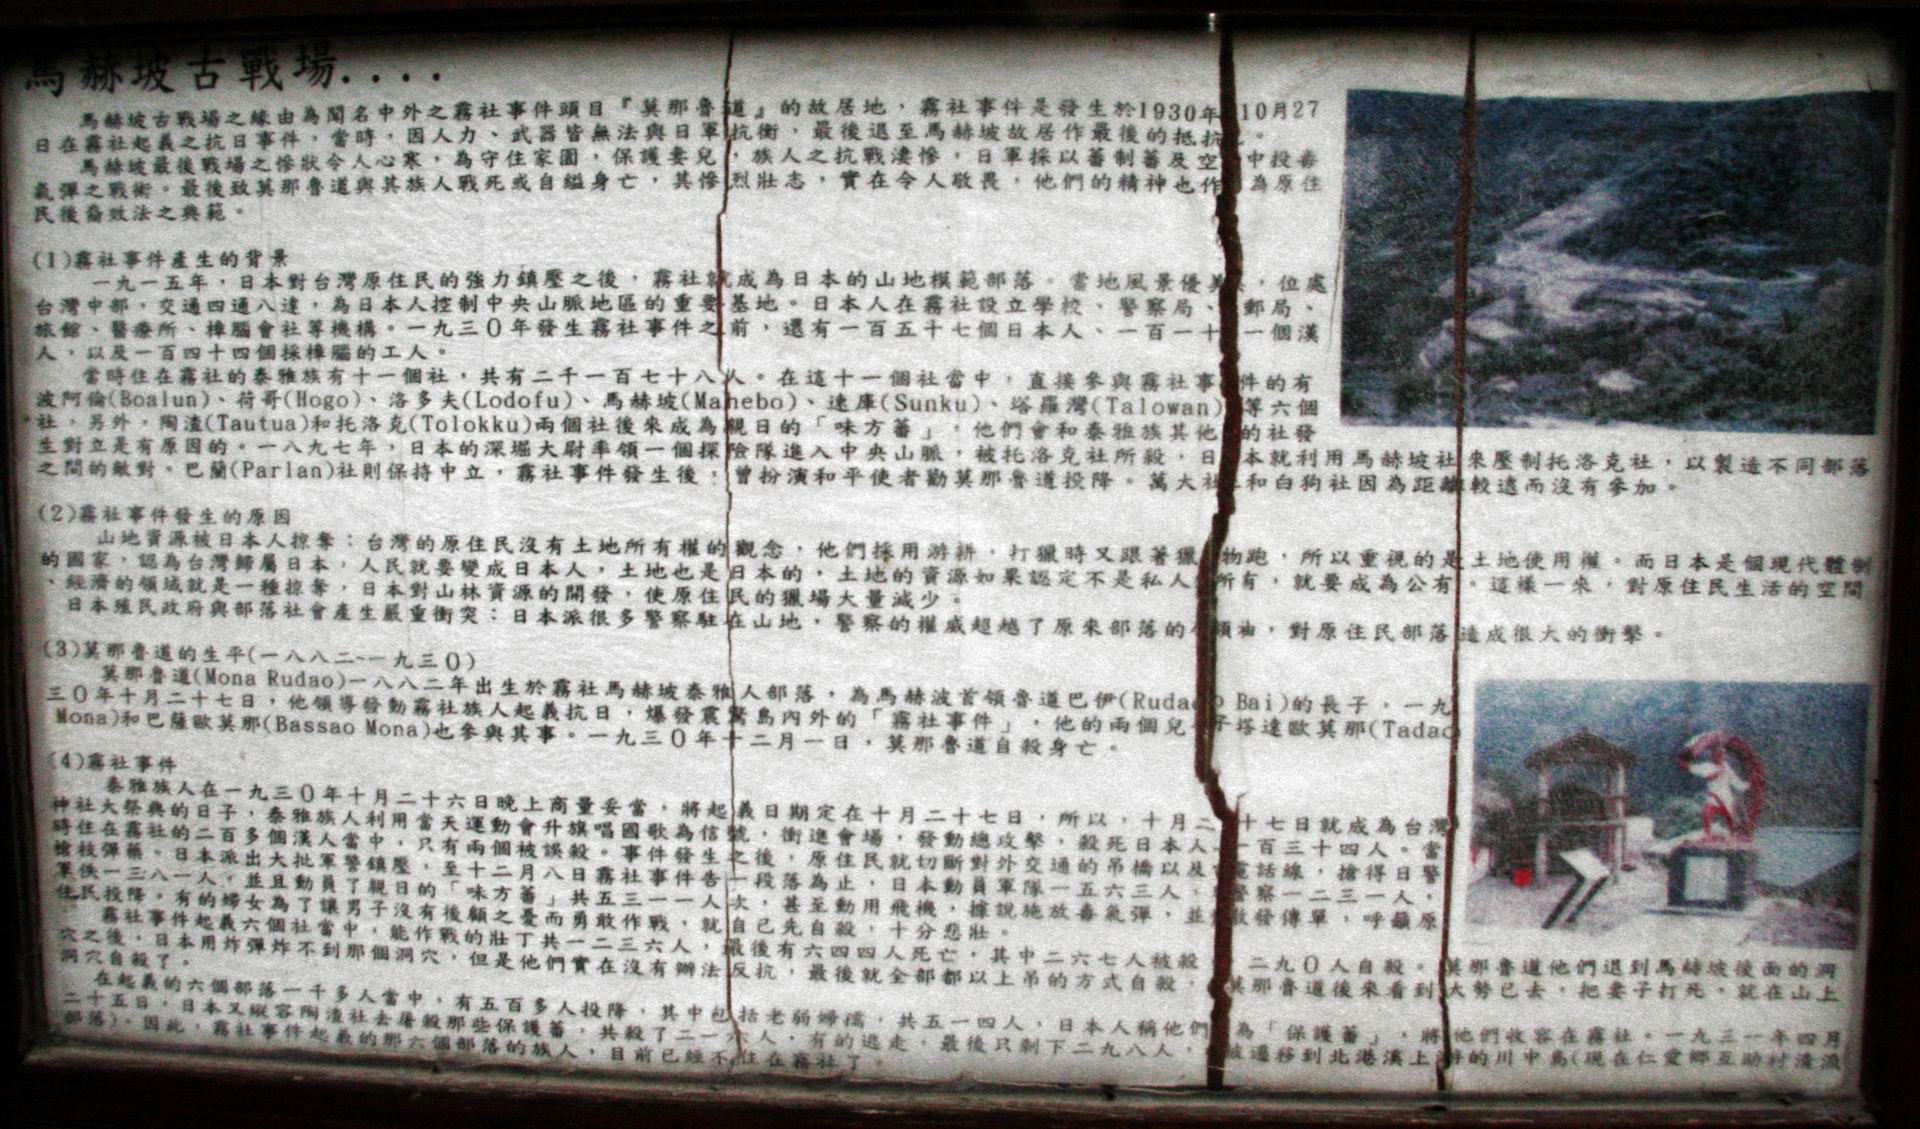 馬赫坡古戰場....
馬赫坡古戰場之緣由為聞名中外之霧社事件頭目『莫那魯道』的故居地，霧社事件是發生於1930年10月27
日在霧社起義之抗日事件，當時，因人力、武器皆無法與日軍抗衡，最後退至馬赫坡故居作最後的抵抗。
馬赫坡最後戰場之慘狀令人心寒，為守住家園，保護妻兒，族人之抗戰淒慘，日軍採以蕃制蕃及空中投毒
氣彈之戰術。最後致莫那魯道與其族人戰死或自縊身亡，其慘烈壯志，實在令人敬畏，他們的精神也作為原住
民後裔效法之典範。
(1)霧社事件產生的背景
一九一五年，日本對台灣原住民的強力鎮壓之後，霧社就成為日本的山地模範部落。當地風景優美，位處
台灣中部，交通四通八達，為日本人控制中央山脈地區的重要基地。日本人在霧社設立學校、警察局、郵局、
旅館、醫療所、樟腦會社等機構。一九三0年發生霧社事件之前，還有一百五十七個日本人、一百一十一個漢
人，以及一百四十四個採樟腦的工人。
當時住在霧社的泰雅族有十一個社，共有二千一百七十八人。在這十一個社當中，直接參與霧社事件的有
波阿倫(Boalun)、荷哥(Hogo)、洛多夫(Lodofu)、馬赫坡(Mahebo)、速庫(Sunku)、塔羅灣(Talowan)等六個
社。另外，陶渣(Tautua)和托洛克(Tolokku)兩個社後來成為親日的「味方蕃」，他們會和泰雅族其他的社發
生對立是有原因的。一八九七年，日本的深堀大尉率領一個探險隊進入中央山脈，被托洛克社所殺，日本就利用馬赫坡社來壓制托洛克社，以製造不同部落
之間的敵對。巴蘭(Parlan)社則保持中立，霧社事件發生後，曾扮演和平使者勸莫那魯道投降。萬大社和白狗社因為距離較遠而沒有參加。
(2)霧社事件發生的原因
山地資源被日本人掠奪：台灣的原住民沒有土地所有權的觀念，他們採用游耕，打獵時又跟著獵物跑，所以重視的是土地使用權。而日本是個現代體制
的國家，認為台灣歸屬日本，人民就要變成日本人，土地也是日本的，土地的資源如果認定不是私人所有，就要成為公有。這樣一來，對原住民生活的空間
、經濟的領域就是一種掠奪，日本對山林資源的開發，使原住民的獵場大量減少。
日本殖民政府與部落社會產生嚴重衝突：日本派很多警察駐在山地，警察的權威超越了原來部落的領袖，對原住民部落造成很大的衝擊。
(3)莫那魯道的生平(一八八二~一九三0)
莫那魯道(Mona Rudao)一八八二年出生於霧社馬赫坡泰雅人部落，為馬赫波首領魯道巴伊(Rudao Bai)的長子，一九
三0年十月二十七日，他領導發動霧社族人起義抗日，爆發震驚島內外的「霧社事件」，他的兩個兒子塔達歐莫那(Tadao
Mona)和巴薩歐莫那(Bassao Mona)也參與其事。一九三0年十二月一日，莫那魯道自殺身亡。
(4)霧社事件
泰雅族人在一九三0年十月二十六日晚上商量妥當，將起義日期定在十月二十七日，所以，十月二十七日就成為台灣
神社大祭典的日子，泰雅族人利用當天運動會升旗唱國歌為信號，衝進會場，發動總攻擊，殺死日本人一百三十四人。當
時住在霧社的二百多個漢人當中，只有兩個被誤殺。事件發生之後，原住民就切斷對外交通的吊橋以及電話線，搶得日警
槍枝彈藥。日本派出大批軍警鎮壓，至十二月八日霧社事件告一段落為止，日本動員軍隊一五六三人，警察一二三一人，
軍伕一三八一人，並且動員了親日的「味方蕃」共五三一一人次，甚至動用飛機，據說施放毒氣彈，並散發傳單，呼籲原
住民投降。有的婦女為了讓男子沒有後顧之憂而勇敢作戰，就自己先自殺，十分悲壯。
霧社事件起義六個社當中，能作戰的壯丁共一二三六人，最後有六四四人死亡，其中二六七人被殺，二九0人自殺。莫那魯道他們退到馬赫坡後面的洞
穴之後，日本用炸彈炸不到那個洞穴，但是他們實在沒有辦法反抗，最後就全部都以上吊的方式自殺，莫那魯道後來看到大勢已去，把妻子打死，就在山上
洞穴自殺了。
在起義的六個部落一千多人當中，有五百多人投降，其中包括老弱婦孺，共五一四人，日本人稱他們為「保護蕃」，將他們收容在霧社。一九三一年四月
二十五日，日本又縱容陶渣社去屠殺那些保護蕃，共殺了二一六人，有的逃走，最後只剩下二九八人，被遷移到北港溪上游的川中島(現在仁愛鄉互助村清流
部落)。因此，霧社事件起義的那六個部落的族人，目前已經不住在霧社了。